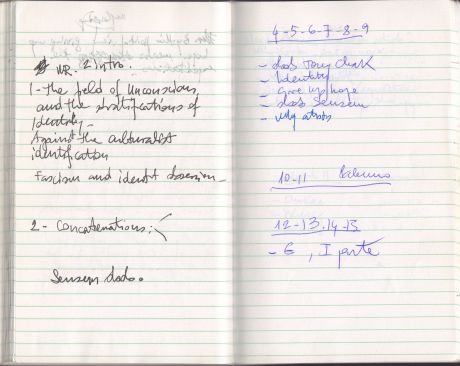 NR. 2 intro.
1 - the field of Unconscious
and the stratifications of
Identity -
Against the culturalist
identification
Fascism and identit obsession -
2 - Concatenations:
Sensem dado.
4 - 5 - 6 - 7 - 8 - 9
- dab
- Identity
- Give up hope
- dab Sensem
- why
10 - 11
12 - 13. 14 - 15
- 6, I parte